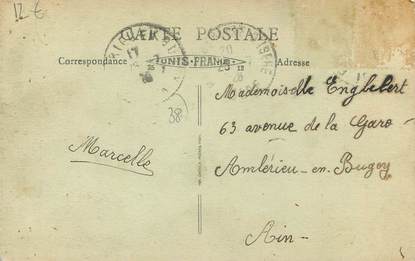 12 €
CARTE POSTALE
TUNIS-FRANCE
Correspondance
Adresse
38
Mademoiselle Englebert
63 avenue de la Gare
Marcelle
Ambérieu-en-Bugey
Ain